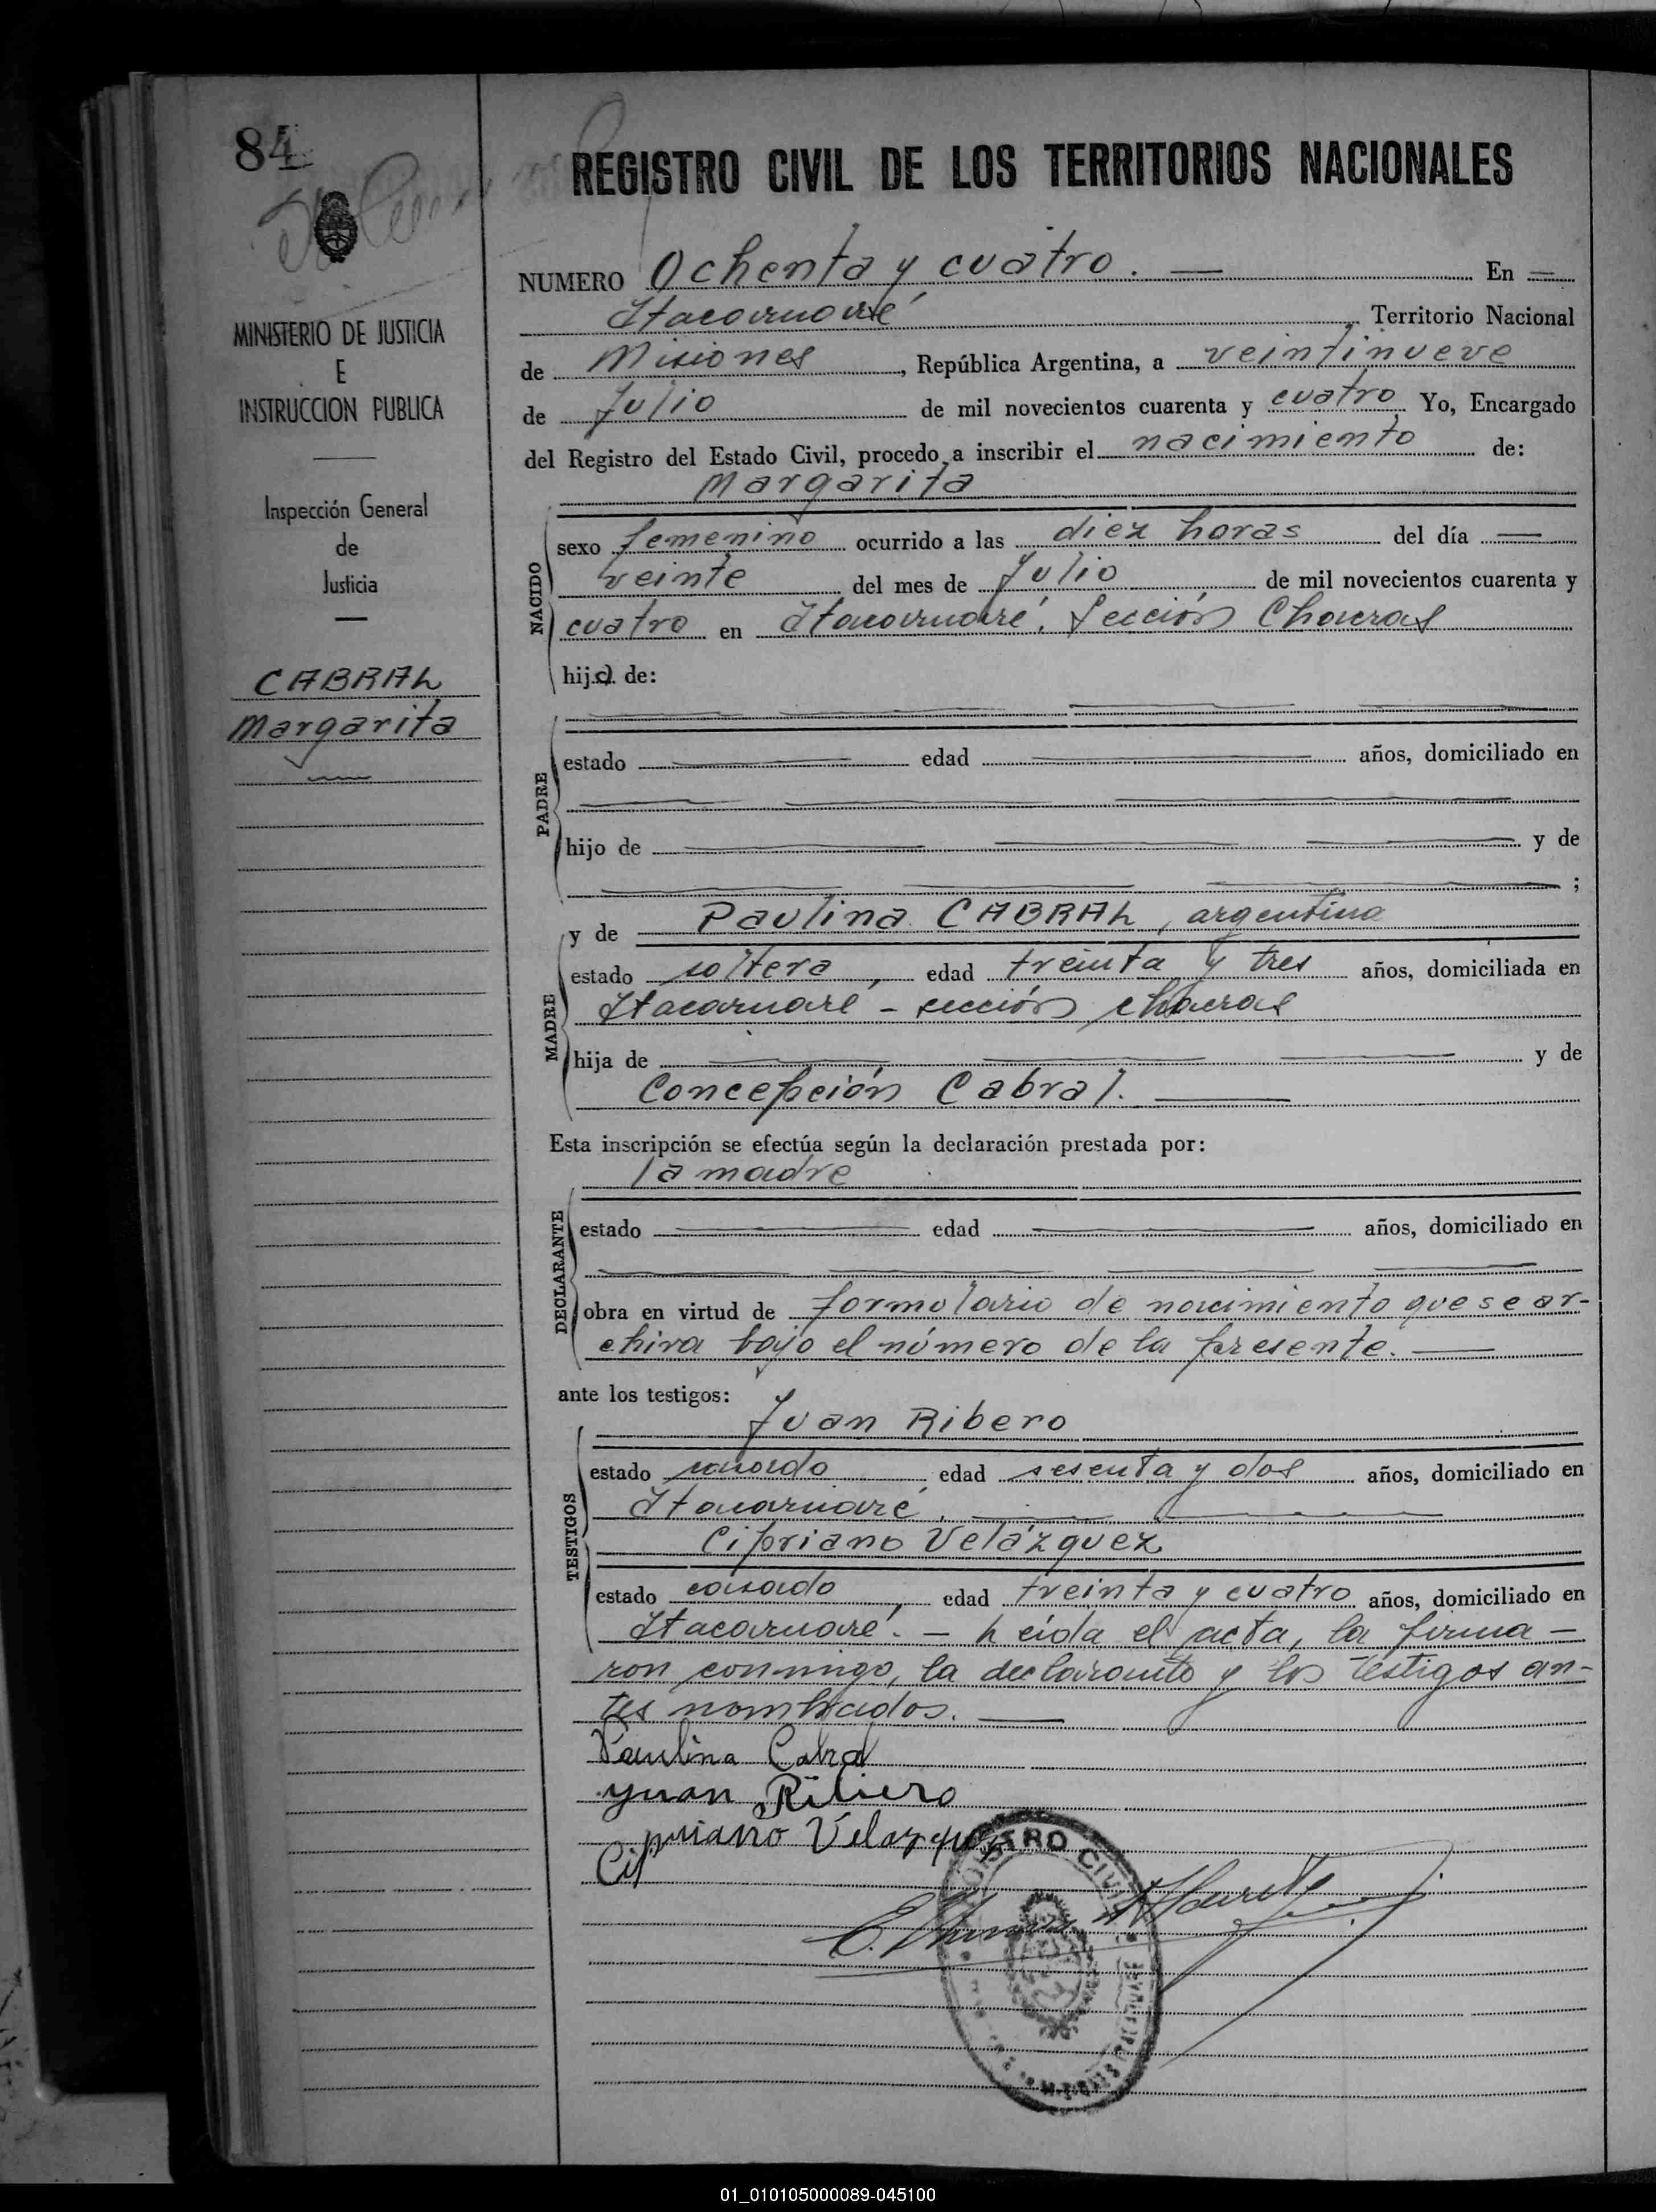 84
REGISTRO CIVIL DE LOS TERRITORIOS NACIONALES
MINISTERIO DE JUSTICIA
E
INSTRUCCION PUBLICA
Inspección General
de
Justicia
CABRAL
Margarita
NUMERO Ochenta y cuatro. — En —
Itacaruaré Territorio Nacional
de Misiones, República Argentina, a veintinueve
de Julio de mil novecientos cuarenta y cuatro Yo, Encargado
del Registro del Estado Civil, procedo a inscribir el nacimiento de:
Margarita
NACIDO
sexo femenino ocurrido a las diez horas del día —
veinte del mes de Julio de mil novecientos cuarenta y
cuatro en Itacaruaré. Sección Chacras
hija de:
PADRE
estado edad años, domiciliado en
hijo de y de
;
y de Paulina CABRAL, argentina
MADRE
estado soltera, edad treinta y tres años, domiciliada en
Itacaruaré - sección chacras
hija de y de
Concepción Cabral. —
Esta inscripción se efectúa según la declaración prestada por:
la madre
DECLARANTE
estado edad años, domiciliado en
obra en virtud de formulario de nacimiento que se ar-
chiva bajo el número de la presente. —
ante los testigos:
Juan Ribero
TESTIGOS
estado casado edad sesenta y dos años, domiciliado en
Itacaruaré,
Cipriano Velázquez
estado casado, edad treinta y cuatro años, domiciliado en
Itacaruaré. — Leída el acta, la firma-
ron conmigo, la declarante y los testigos an-
tes nombrados. —
Paulina Cabral
Juan Ribero
Cipriano Velazquez
REGISTRO CIVIL
01_010105000089-045100